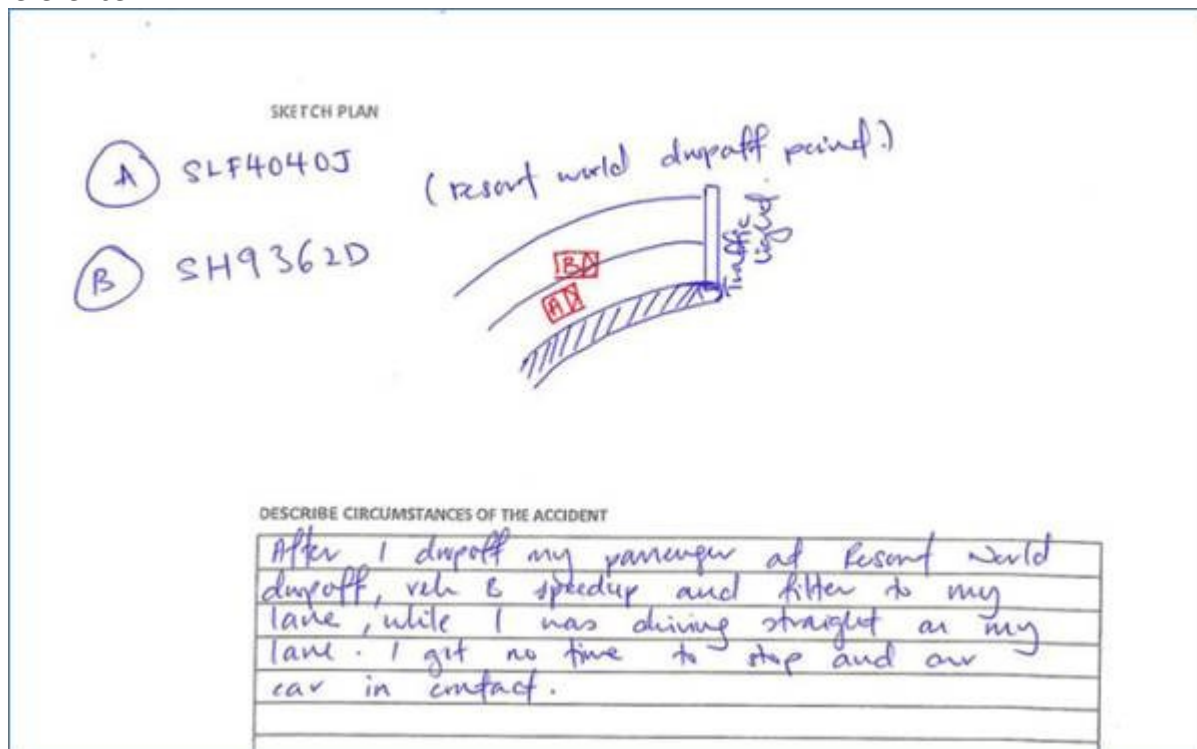 SKETCH PLAN
A SLF4040J
(resort world dropoff point.)
B SH9362D
B
A
Traffic
light
DESCRIBE CIRCUMSTANCES OF THE ACCIDENT
After I dropoff my passenger at Resort World
dropoff, veh B speedup and filter to my
lane, while I was driving straight on my
lane. I got no time to stop and our
car in contact.